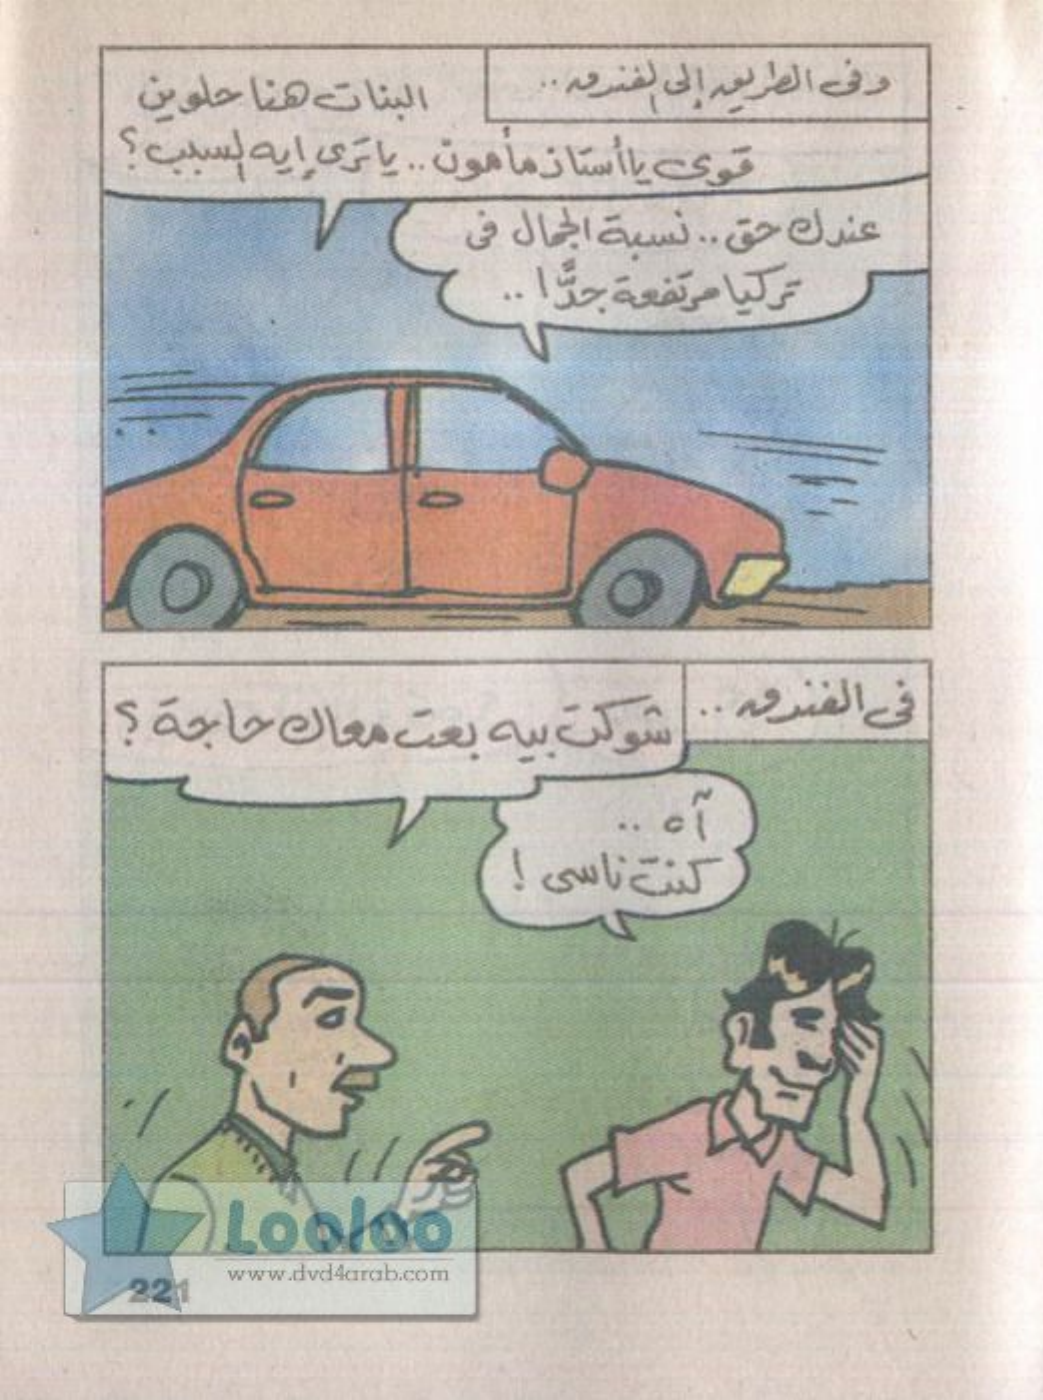 وفى الطريق إلى الفندق..
البنات هنا حلوين
قوى ياأستاذ مأمون.. ياترى إيه السبب؟
عندك حق.. نسبة الجمال فى
تركيا مرتفعة جدًّا..
فى الفندق..
شوكت بيه بعت معاك حاجة؟
آه..
كنت ناسى!
Looloo
www.dvd4arab.com
221